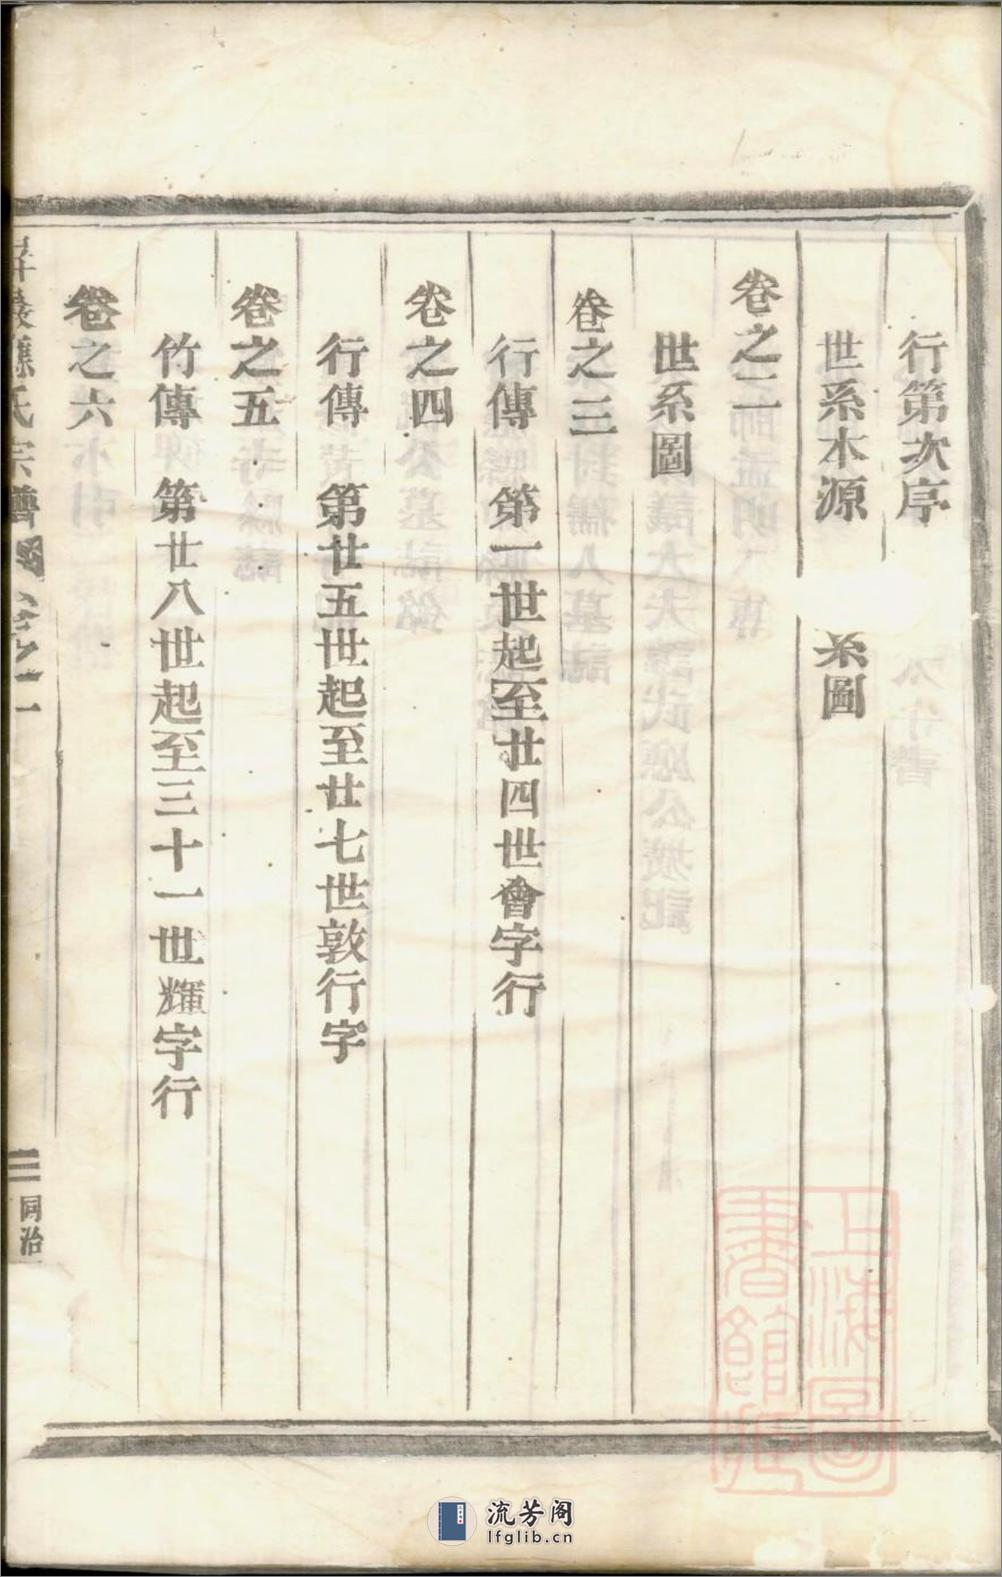 行第次序
世系木源　系圖
卷之二
世系圖
卷之三
行傳　第一世起至廿四世會字行
卷之四
行傳　第廿五世起至廿七世敦行字
卷之五
竹傳　第廿八世起至三十一世輝字行
卷之六
氏宗譜　卷之一
三　同治
上海圖書館藏
流芳阁
lfglib.cn